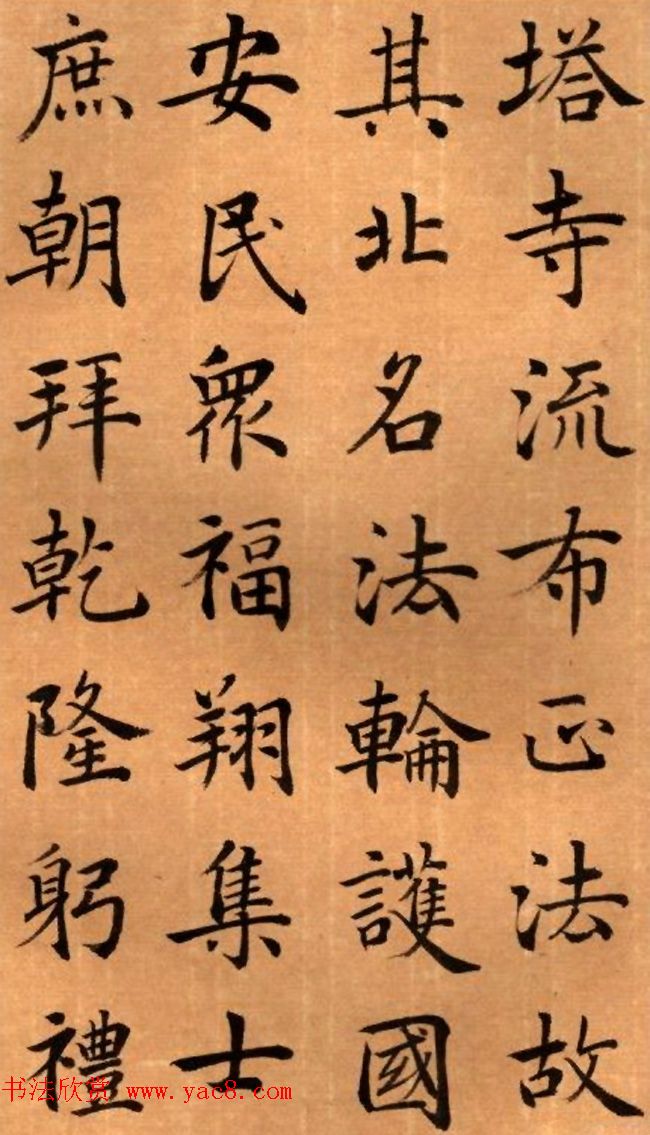 塔寺流布正法故
其北名法輪護國
安民眾福翔集士
庶朝拜乾隆躬禮
书法欣赏 www.yac8.com